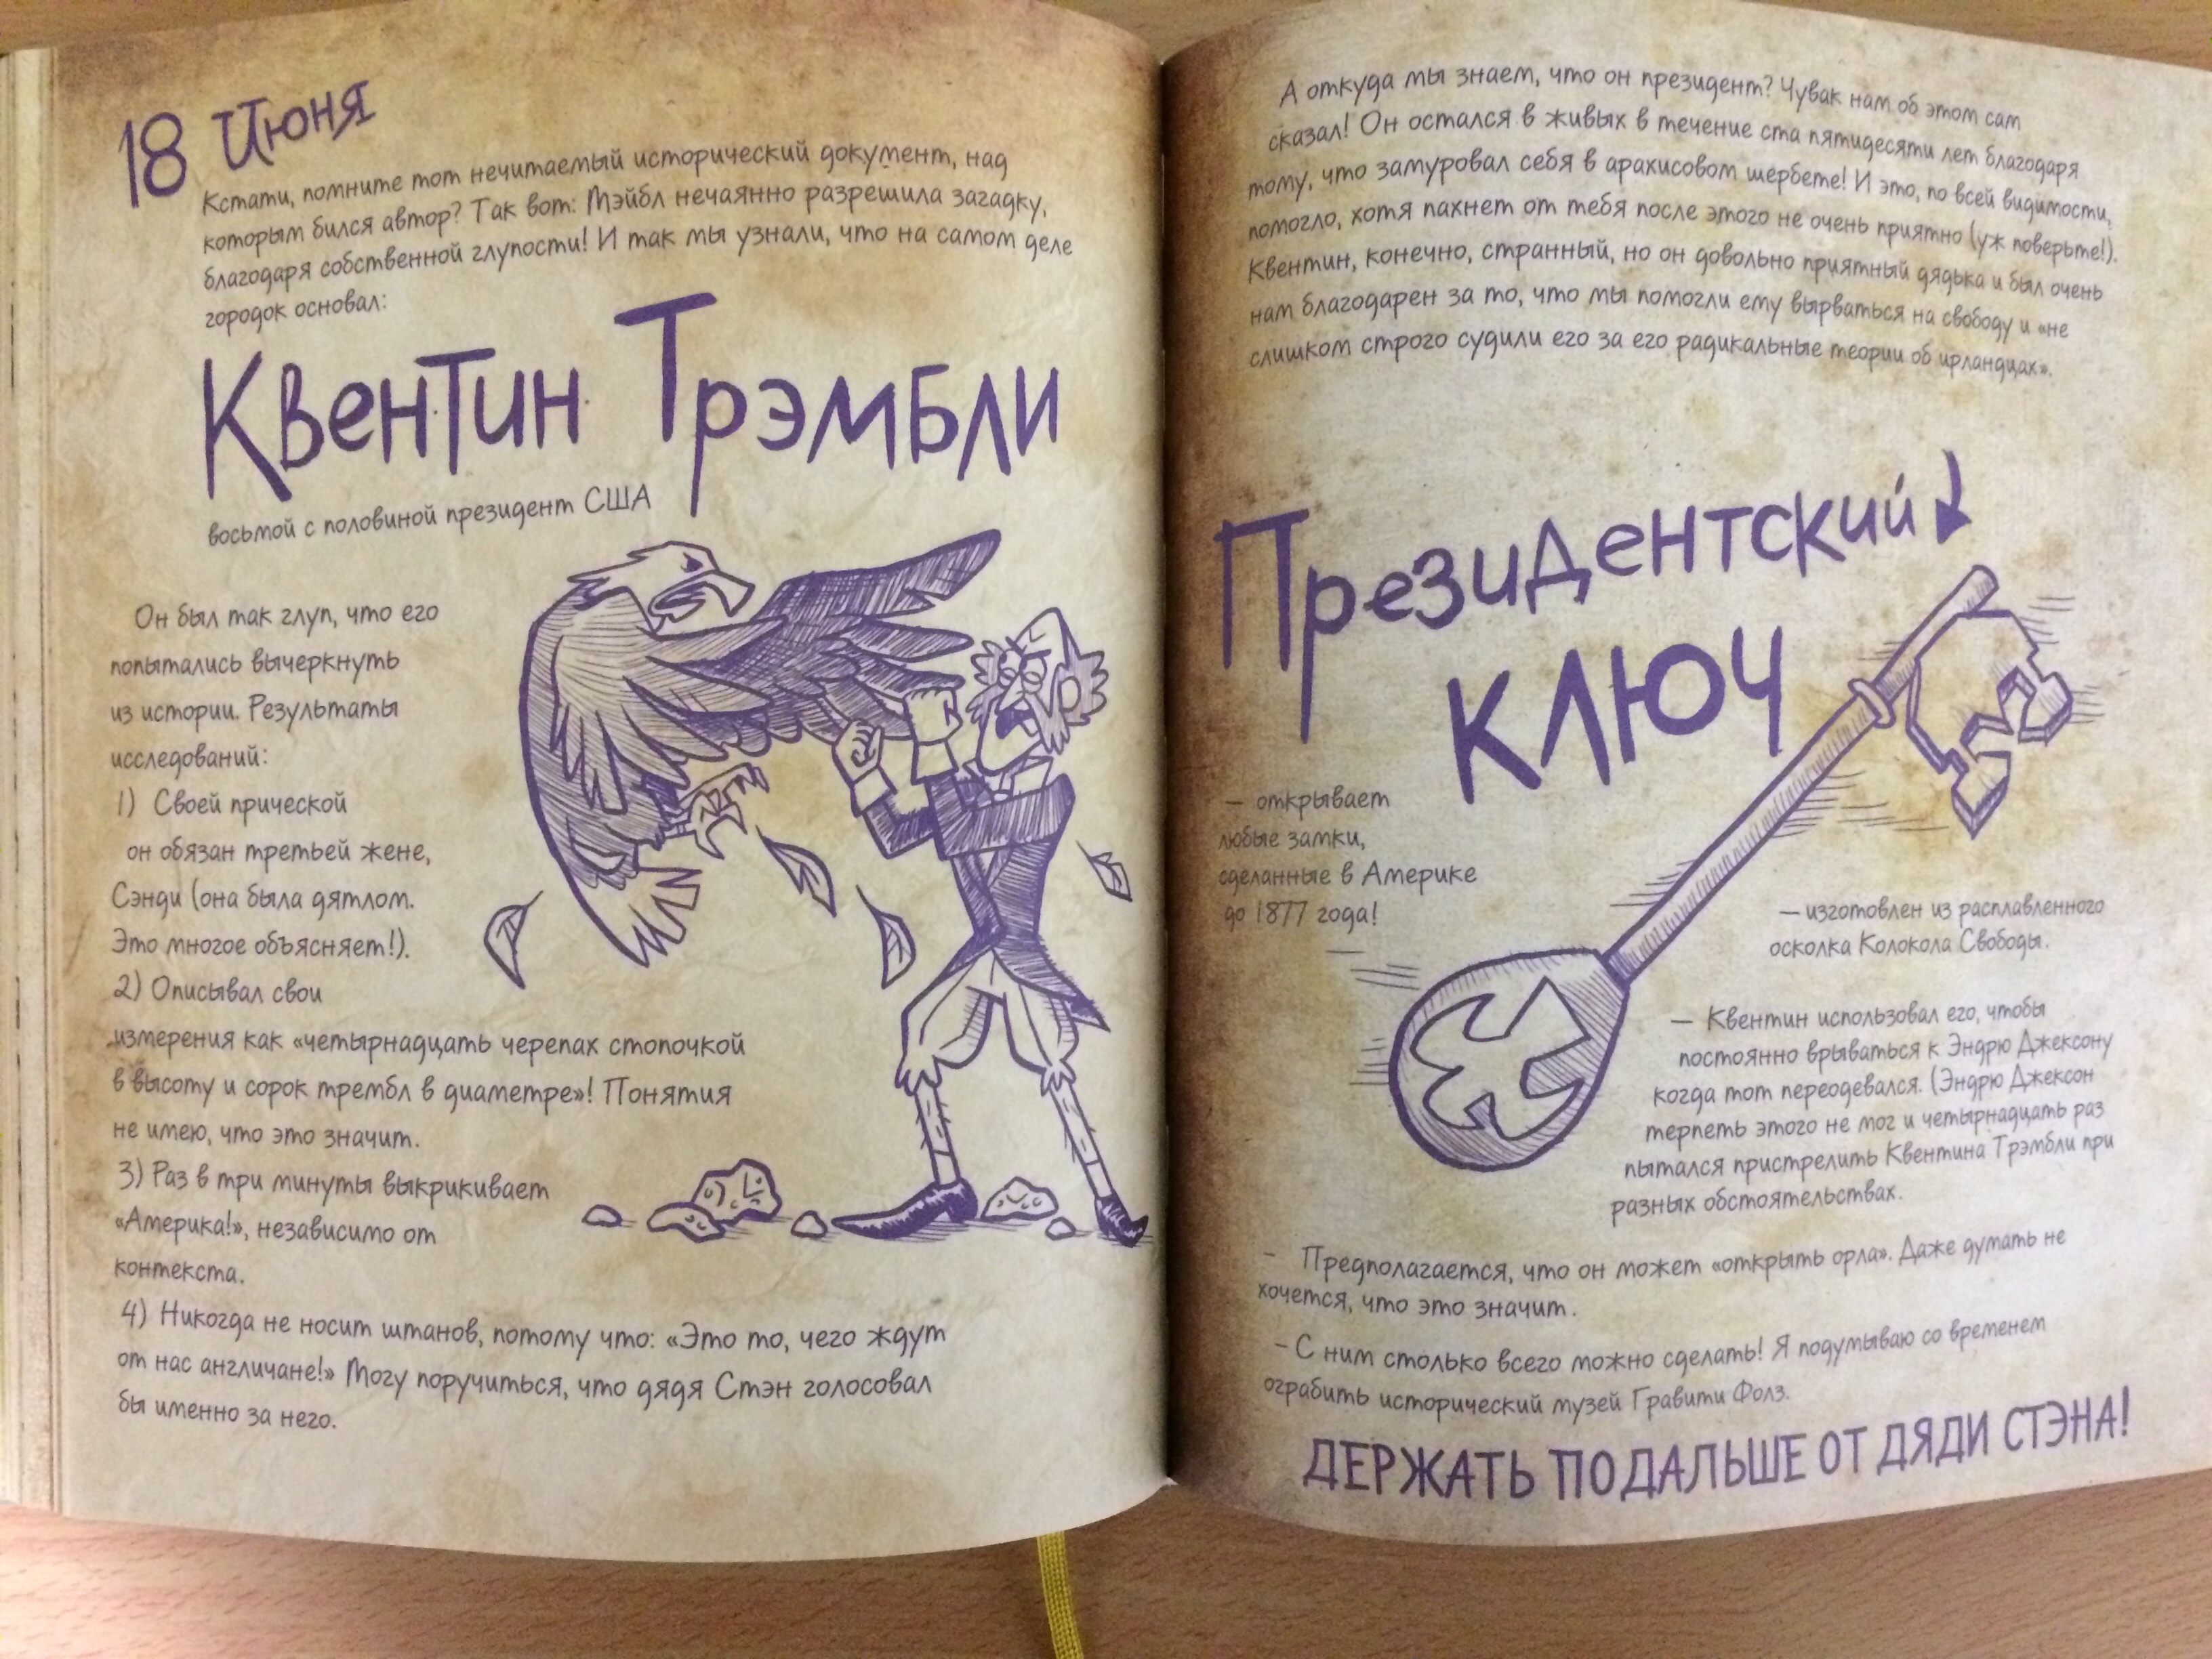 18 Июня
Кстати, помните тот нечитаемый исторический документ, над
которым бился автор? Так вот: Мэйбл нечаянно разрешила загадку,
благодаря собственной глупости! И так мы узнали, что на самом деле
городок основал:
Квентин Трэмбли
восьмой с половиной президент США
Он был так глуп, что его
попытались вычеркнуть
из истории. Результаты
исследований:
1) Своей прической
он обязан третьей жене,
Сэнди (она была дятлом.
Это многое объясняет!).
2) Описывал свои
измерения как «четырнадцать черепах стопочкой
в высоту и сорок трембл в диаметре»! Понятия
не имею, что это значит.
3) Раз в три минуты выкрикивает
«Америка!», независимо от
контекста.
4) Никогда не носит штанов, потому что: «Это то, чего ждут
от нас англичане!» Могу поручиться, что дядя Стэн голосовал
бы именно за него.
А откуда мы знаем, что он президент? Чувак нам об этом сам
сказал! Он остался в живых в течение ста пятидесяти лет благодаря
тому, что замуровал себя в арахисовом щербете! И это, по всей видимости,
помогло, хотя пахнет от тебя после этого не очень приятно (уж поверьте!).
Квентин, конечно, странный, но он довольно приятный дядька и был очень
нам благодарен за то, что мы помогли ему вырваться на свободу и «не
слишком строго судили его за его радикальные теории об ирландцах».
Президентский
ключ
– открывает
любые замки,
сделанные в Америке
до 1877 года!
– изготовлен из расплавленного
осколка Колокола Свободы.
– Квентин использовал его, чтобы
постоянно врываться к Эндрю Джексону
когда тот переодевался. (Эндрю Джексон
терпеть этого не мог и четырнадцать раз
пытался пристрелить Квентина Трэмбли при
разных обстоятельствах.
– Предполагается, что он может «открыть орла». Даже думать не
хочется, что это значит.
– С ним столько всего можно сделать! Я подумываю со временем
ограбить исторический музей Гравити Фолз.
ДЕРЖАТЬ ПОДАЛЬШЕ ОТ ДЯДИ СТЭНА!